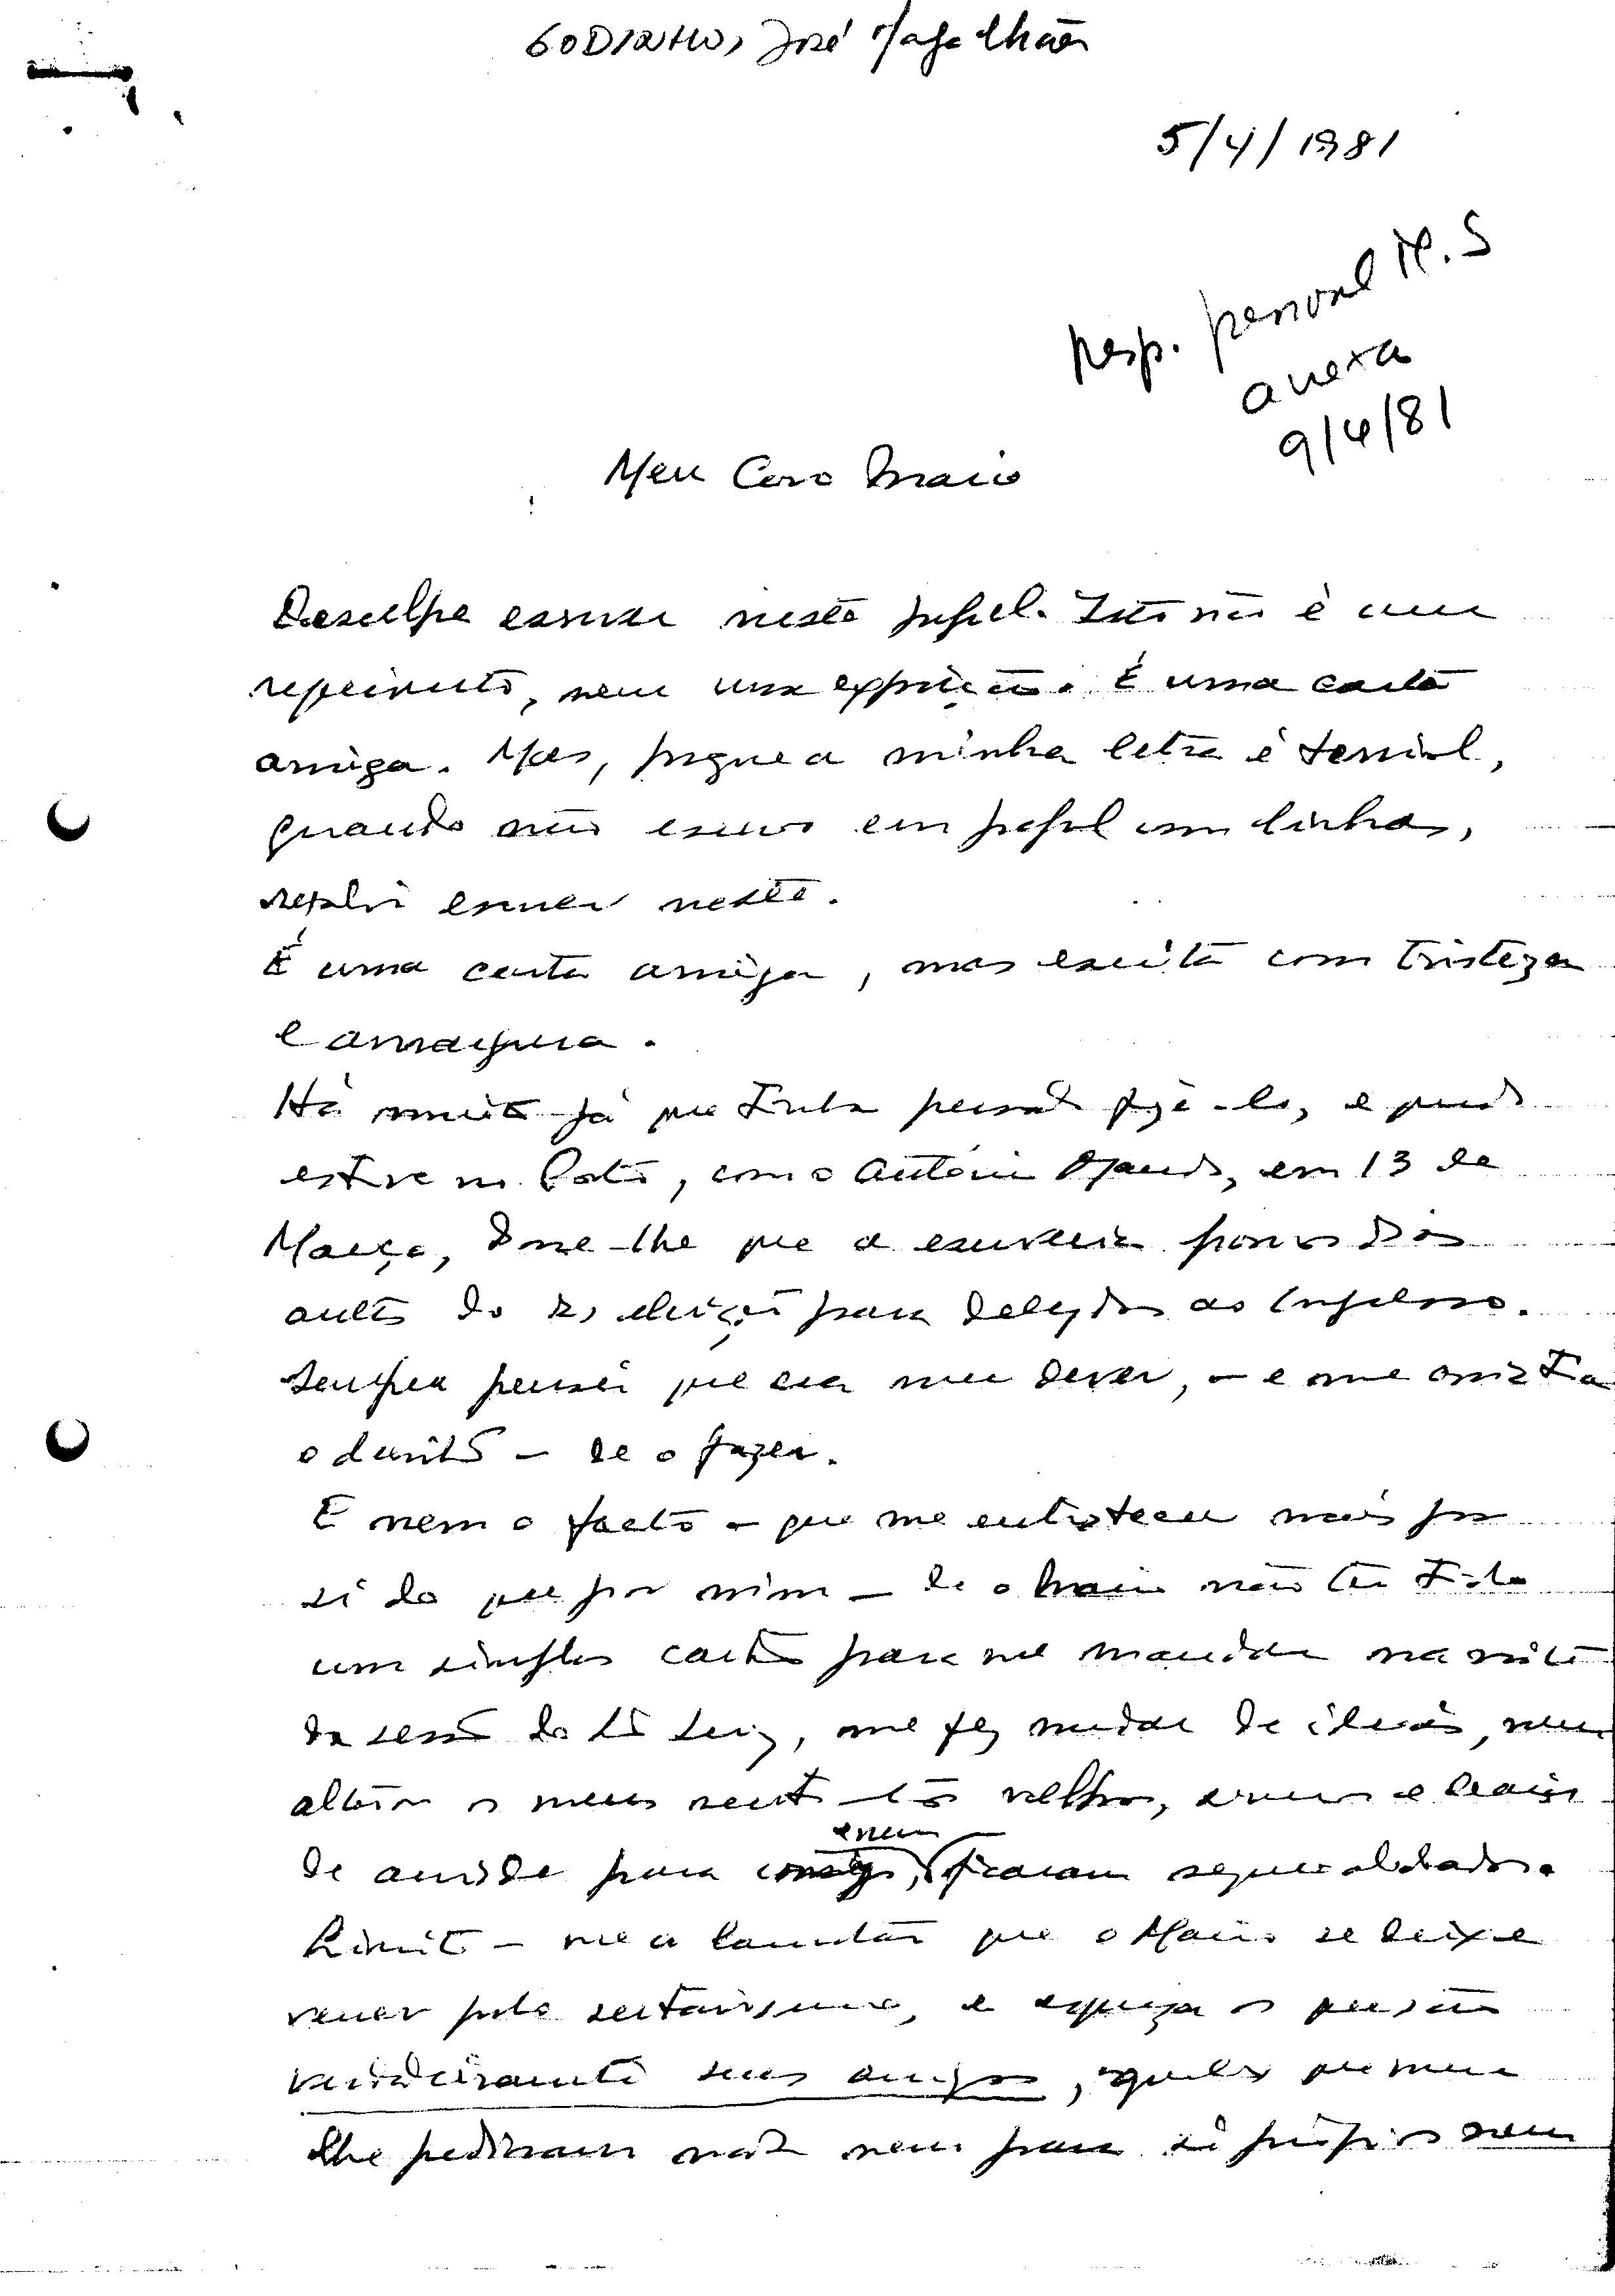 GODINHO, José Magalhães
5/4/1981
Resp. pessoal M.S
anexa
9/4/81
Meu Caro Mário
Desculpe escrever neste papel. Isto não é um
requerimento, nem uma exposição. É uma carta
amiga. Mas, porque a minha letra é terrível,
quando não escrevo em papel com linhas,
resolvi escrever neste.
É uma carta amiga, mas escrita com tristeza
e amargura.
Há muito já que tinha pensado fazê-lo, e quando
estive no Porto, com o António Macedo, em 13 de
Março, disse-lhe que a escreveria poucos dias
antes do das eleições para delegados ao Congresso.
Sempre pensei que era meu dever, – e me assistia
o direito – de o fazer.
E nem o facto – que me entristeceu mais por
si do que por mim – de o Mário não ter tido
um simples cartão para me mandar na noite
da sessão do São Luiz, me fez mudar de ideias, nem
alterou os meus sentimentos velhos, e leais
de amizade para consigo, que nem ficaram sequer abalados.
Limito-me a lamentar que o Mário se deixe
vencer pelo sectarismo, e esqueça os que são
verdadeiramente seus amigos, aqueles que nunca
lhe pediram nada nem para si próprios nem